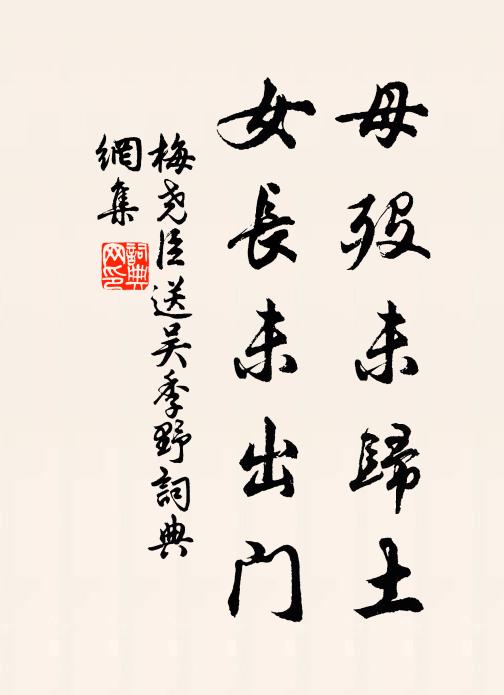 母歿未歸土
女長未出门
梅尧臣送吴季野詞典
網集
詞典
网印